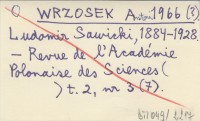 WRZOSEK Antoni 1966 (?)
Ludomir Sawicki, 1884-1928.
– Revue de l'Académie
Polonaise des Sciences (
) t. 2, nr 3 (7).